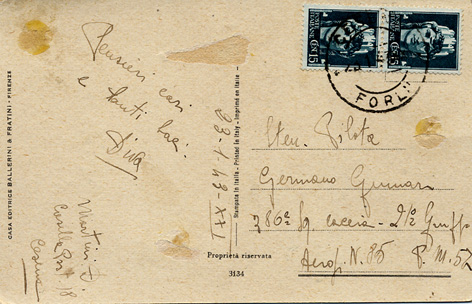 CASA EDITRICE BALLERINI & FRATINI - FIRENZE
Pensieri cari
e tanti baci
Diva
Martini D.
Casella Post. 18
Cesena
23-1-43-XXI
Stampata in Italia - Printed in Italy - Imprimé en Italie
Proprietà riservata
3134
CENT. 15
CENT. 15
FORLI
Pilota
Germano
386ª Sq caccia - 21º Grupp
Aerop. N. 85 P. M. 52